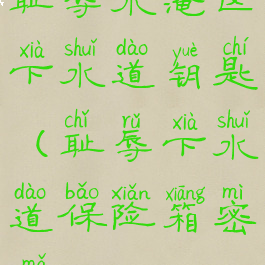 耻辱水淹区
xià shuǐ dào yuè chí
下水道钥匙
chǐ rǔ xià shuǐ
（耻辱下水
dào bǎo xiǎn xiāng mì
道保险箱密
mǎ